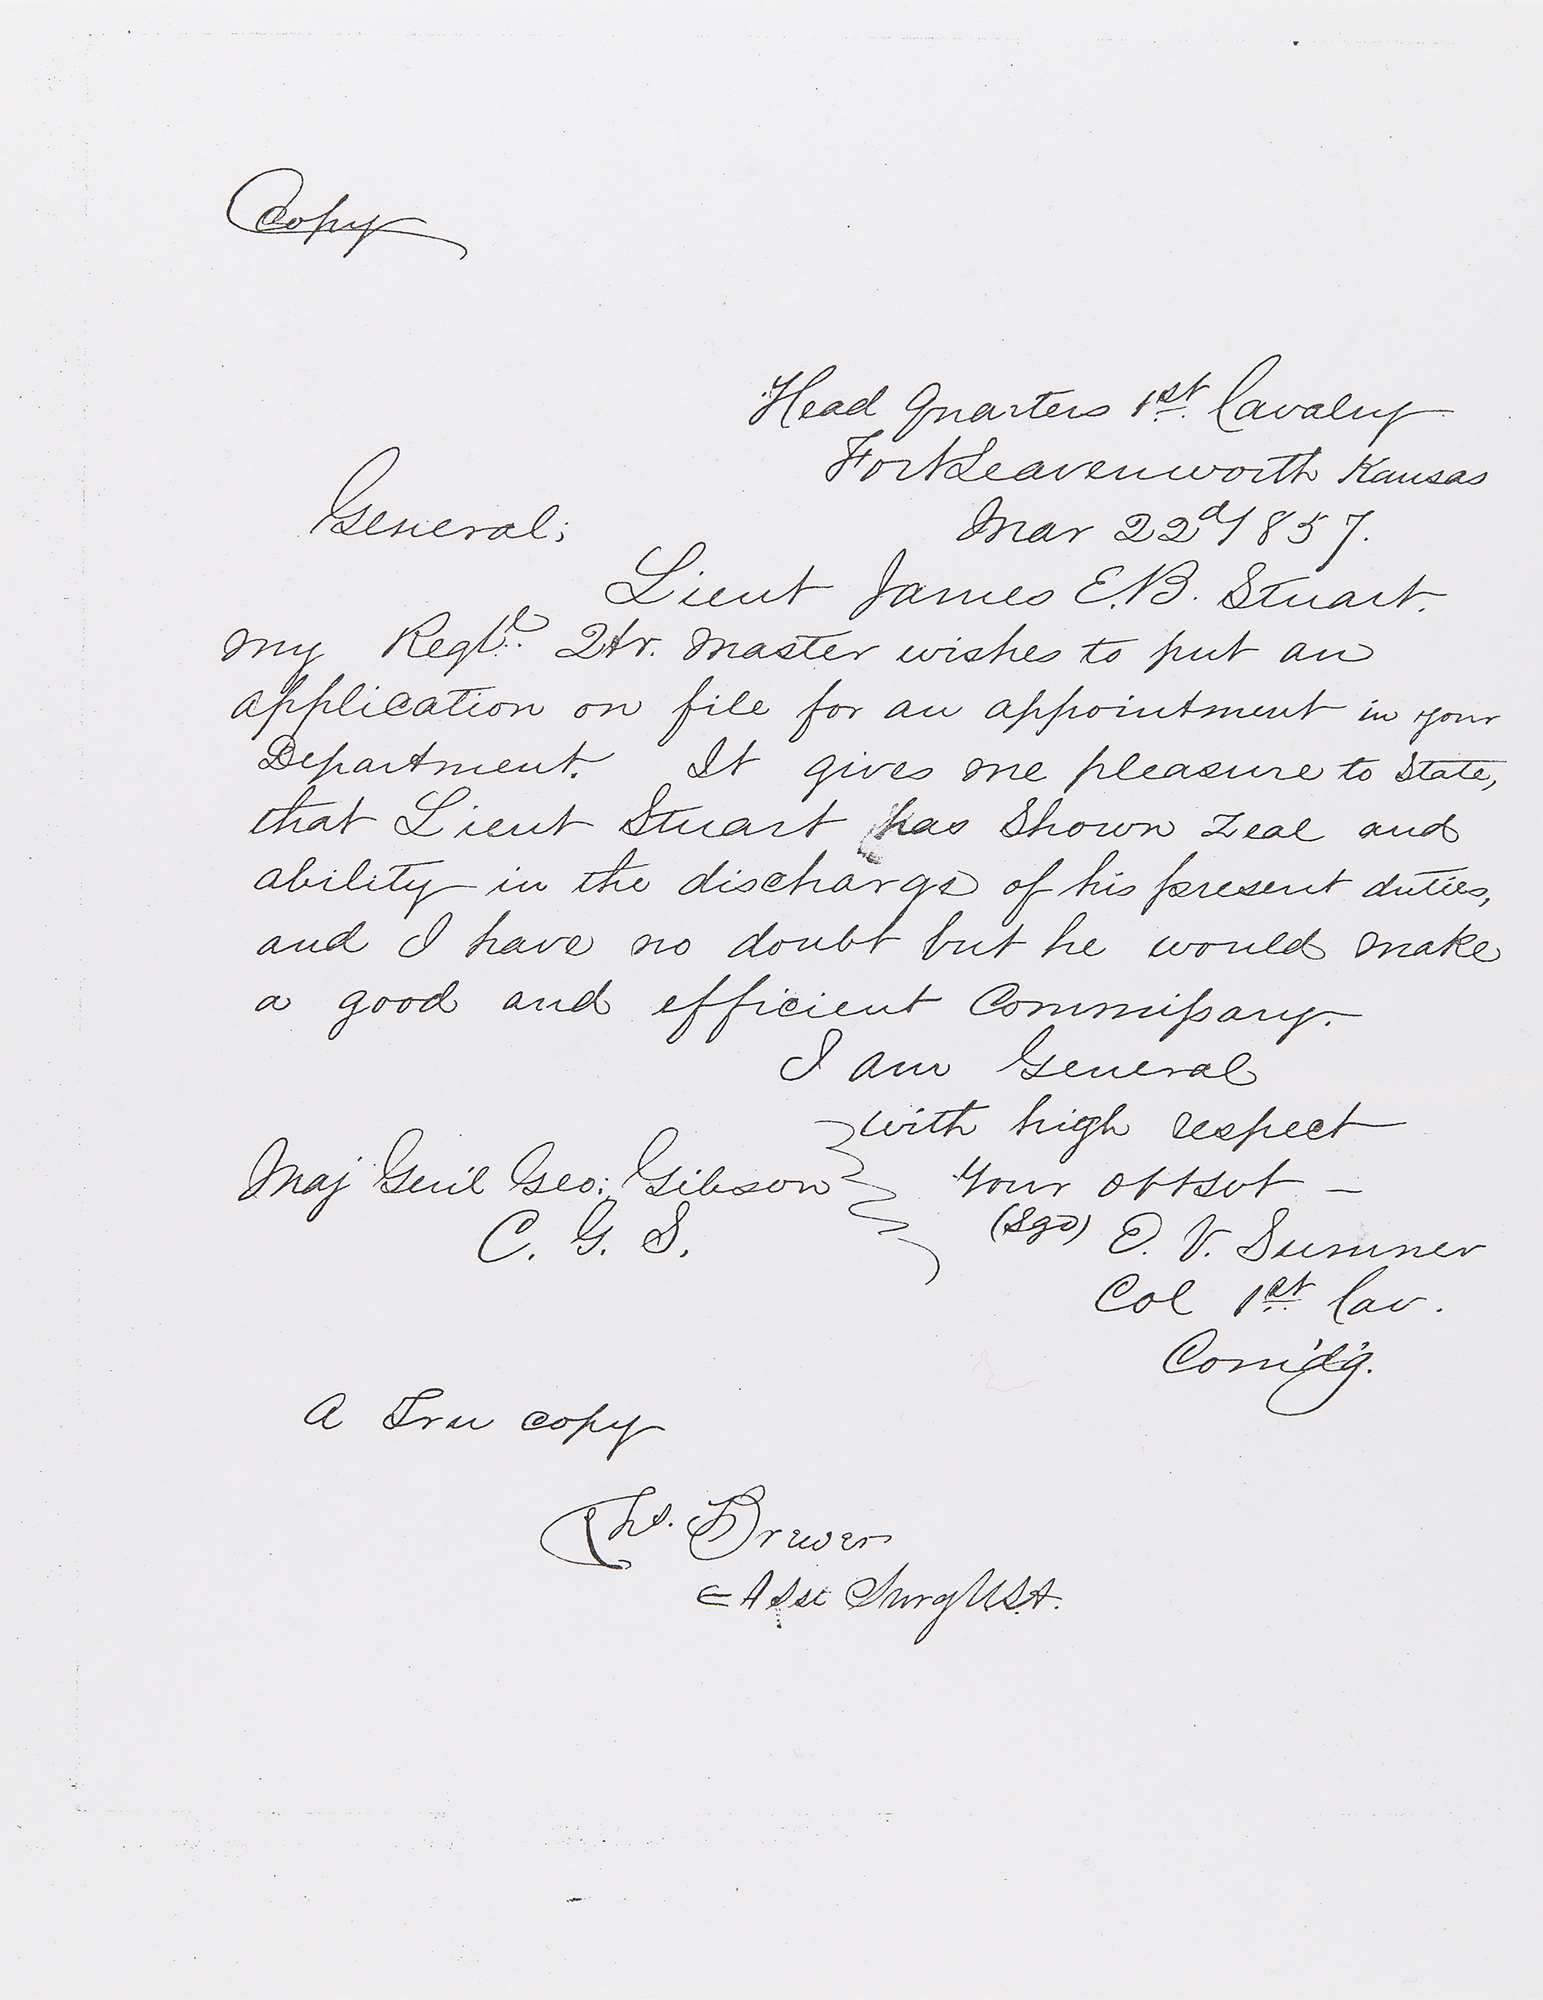 Copy
Head Quarters 1st. Cavalry
Fort Leavenworth Kansas
General;
Mar 22d 1857.
Lieut James E.B. Stuart.
my Regtl. Qtr. Master wishes to put an
application on file for an appointment in your
Department. It gives me pleasure to State,
that Lieut Stuart has Shown Zeal and
ability in the discharge of his present duties,
and I have no doubt but he would make
a good and efficient Commissary.
I am General
with high respect
Your obtsvt —
Maj Genl Geo: Gibson
C. G. S.
(Sgd) E. V. Sumner
Col 1st. Cav.
Com'd'g.
A True copy
Chs. Brewer
Asst Surg U.S.A.